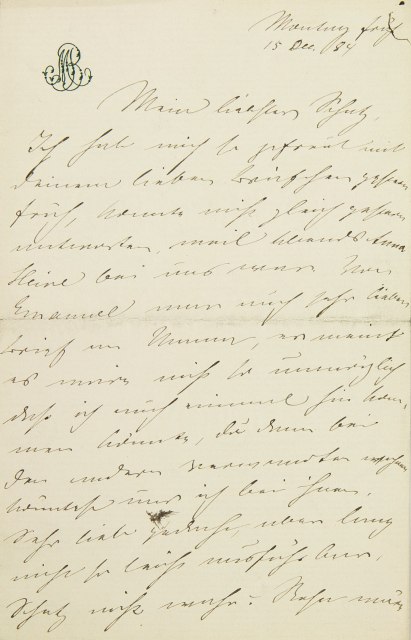 Montag früh
15 Dec. /84
Mein liebster Schatz,
Ich hab mich so gefreut mit
Deinem lieben Briefchen gestern
früh, konnte nicht gleich gestern
antworten, weil Abends Anna
bei uns waren. Von
Emanuel war auch sehr lieber
Brief an Mama, er meint
es wäre nicht so unmöglich
daß ich auch einmal hin kom-
men könnte, Du dann bei
den andern Verwandten
und ich bei ihnen,
Sehr lieb gedacht, aber lang
nicht so leicht ausführbar,
Schatz nicht wahr?